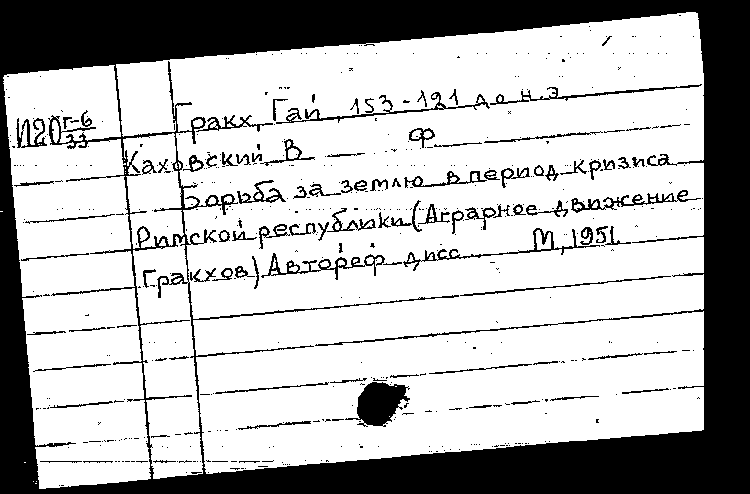 Гракх, Гай, 153-121 до н.э.
И20 г-6/33
Каховский, В Ф
Борьба за землю в период кризиса
Римской республики (Аграрное движение
Гракхов) Автореф дисс М, 1951